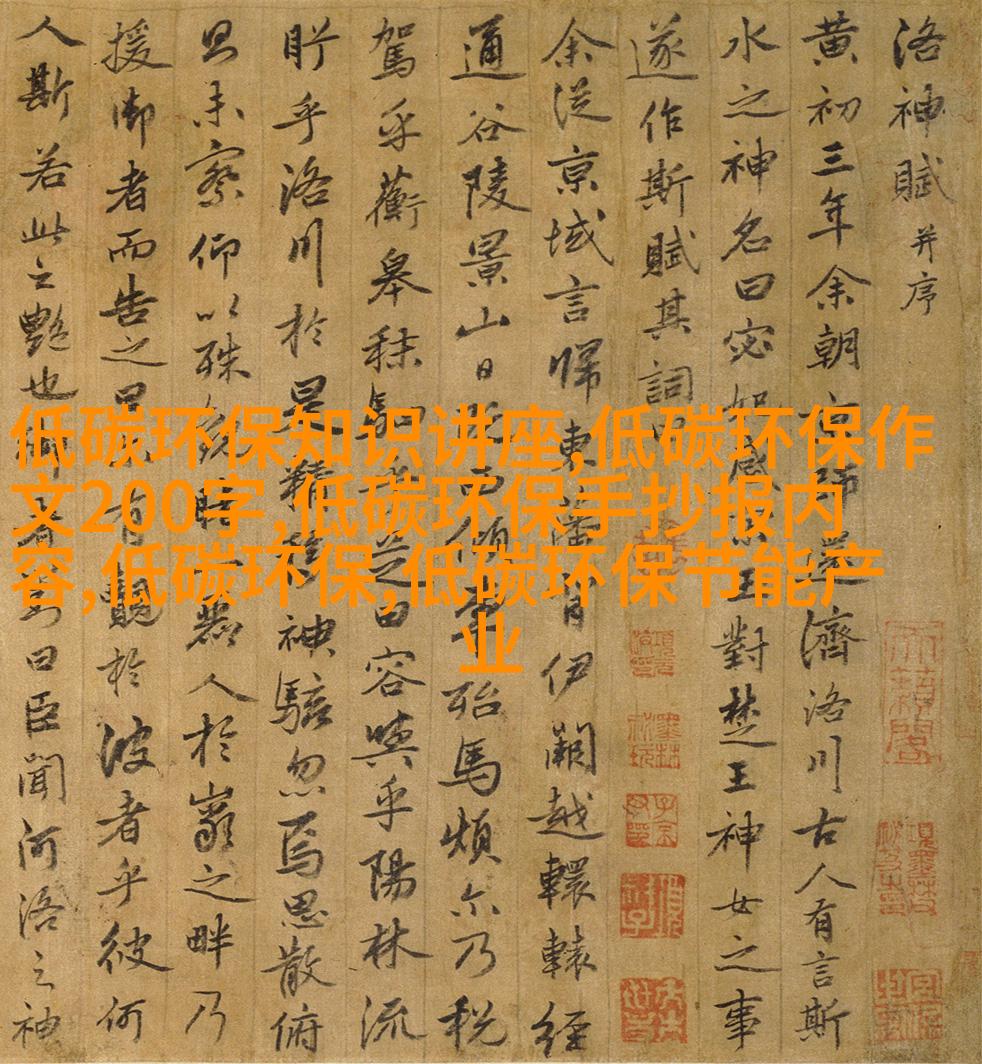 洛神賦并序
黄初三年余朝京師還濟洛川古人有言斯
水之神名曰宓妃感宋玉對楚王神女之事
遂作斯賦其詞曰
余從京域言歸東藩背伊闕越轘轅經
通谷陵景山日既西傾車殆馬煩尒乃稅
駕乎蘅皋秣駟乎芝田容與乎陽林流
眄乎洛川於是精移神駭忽焉思散俯
則未察仰以殊觀睹一麗人於巖之畔乃
援御者而告之曰尒有覿於彼者乎彼何
人斯若此之艷也御者對曰臣聞河洛之神
低碳环保知识讲座,低碳环保作
文200字,低碳环保手抄报内
容,低碳环保,低碳环保节能产
业